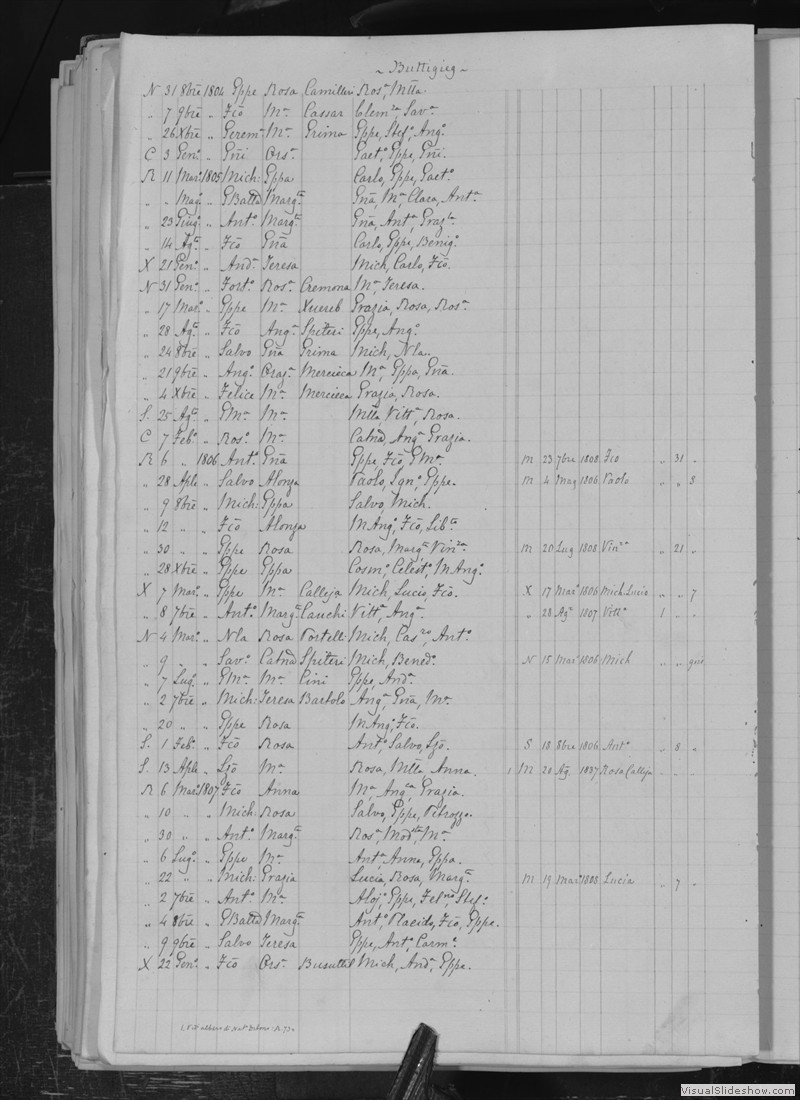 ~ Buttigieg ~
N 31 8bre 1804 Gppe Rosa Camilleri Ros.a, Mtta.
" 7 9bre " Fco M.a Cassar Clem.za, Sav.a
" 26 Xbre " Gerem.a M.a Grima Gppe, Stef.o, Ang.o
C 3 Gen.o " Gni Ors.a Gaet.o, Gppe, Gni.
R 11 Mar.o 1805 Mich: Gppa Carlo, Gppe, Gaet.o
" " Mag.o " GBatta Marg.ta Gna, M.a, Clara, Ant.a
" 23 Giug.o " Ant.o Marg.ta Gna, Ant.a, Graz.la
" 14 Ag.o " Fco Gna Carlo, Gppe, Benig.o
X 21 Gen.o " And.a Teresa Mich, Carlo, Fco.
N 31 Gen.o " Fort.o Ros.a Cremona M.a, Teresa.
" 17 Mar.o " Gppe M.a Xuereb Grazia, Rosa, Ros.a
" 28 Ag.o " Fco Ang.a Spiteri Gppe, Ang.o
" 24 8bre " Salvo Gna Grima Mich, Nla.
" 21 9bre " Ang.o Graz.a Mercieca M.a, Gppa, Gna.
" 4 Xbre " Felice M.a Mercieca Grazia, Rosa.
S. 25 Ag.o " GM.a M.a Mtta, Vitt.a, Rosa.
C 7 Feb.o " Ros.o M.a Catna, Ang.a, Grazia.
R 6 " 1806 Ant.o Gna Gppe, Fco, GM.a M 23 7bre 1808 Fco " 31 "
" 28 Aple " Salvo Alonza Paolo, Ign.o, Gppe. M 4 Mag 1806 Paolo " " 8
" 9 8bre " Mich: Gppa Salvo, Mich.
" 12 " " Fco Alonza MAng.a, Fco, Lib.ta
" 30 " " Gppe Rosa Rosa, Marg.ta, Vin.za M 20 Lug 1808 Vin.za " 21 "
" 28 Xbre " Gppe Gppa Cosm.o, Celest.o, MAng.a
X 7 Mar.o " Gppe M.a Calleja Mich, Lucio, Fco. X 17 Mar.o 1806 Mich Lucio " " 7
" 8 7bre " Ant.o Marg.ta Cauchi Vitt.a, Ang.a " 28 Ag.o 1807 Vitt.a 1 " "
N 4 Mar.o " Nla Rosa Portelli Mich, Cas.ro, Ant.o
" 9 " " Sav.o Catna Spiteri Mich, Bened.o N 15 Mar 1806 Mich " "
" 7 Lug.o " GM.a M.a Cini Gppe, And.a
" 2 7bre " Mich: Teresa Bartolo Ang.a, Gna, M.a
" 20 " " Gppe Rosa MAng.a, Fco.
S. 1 Feb.o " Fco Rosa Ant.o, Salvo, Lzo. S 18 8bre 1806 Ant.o " 8 "
S. 13 Aple " Lzo M.a Rosa, Mtta, Anna. 1 M 20 Ag. 1837 Rosa Calleja " " "
R 6 Mar.o 1807 Fco Anna M.a, Ang.ca, Grazia.
" 10 " " Mich: Rosa Salvo, Gppe,
" 30 " " Ant.o Marg.ta Ros.a, Mod.sta, M.a
" 6 Lug.o " Gppe M.a Ant.a, Anna, Gppa.
" 22 " " Mich: Grazia Lucia, Rosa, Marg.ta M 19 Mar 1808 Lucia " 7 "
" 2 7bre " Ant.o M.a Aloj.o, Gppe, Fel.no, Stef.o
" 4 8bre " GBatta Marg.ta Ant.o, Placido, Fco, Gppe.
" 9 9bre " Salvo Teresa Gppe, Ant.o, Carm.o
X 22 Gen.o " Fco Ors.a Busuttil Mich, And.a, Gppe.
VisualSlideshow.com